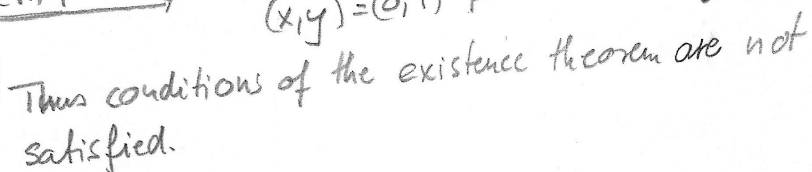 (x,y)=(0,1)
Thus conditions of the existence theorem are not
satisfied.